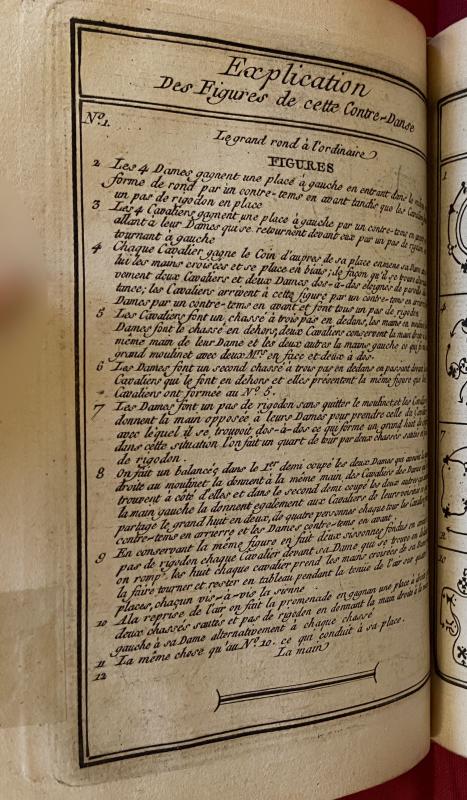 Explication
Des Figures de cette Contre-Danse
No. 1.
Le grand rond à l'ordinaire
FIGURES
2 Les 4 Dames gagnent une place à gauche en entrant dans le
forme de rond par un contre-tems en avant tandis que les
un pas de rigodon en place
3 Les 4 Cavaliers gagnent une place à gauche par un contre-tems en
allant à leur Dames qui se retournent devant eux par un pas de rigodon
tournant à gauche
4 Chaque Cavalier gagne le Coin d'aupres de sa place enmene sa
lui les mains croisées et se place en biais; de façon qu'il se trouve
vement deux Cavaliers et deux Dames dos-à-dos eloynés de pareille
tance; les Cavaliers arrivent à cette figure par un contre-tems en
Dames par un contre-tems en avant et font tous un pas de rigodon
5 Les Cavaliers font un chassé à trois pas en dedans, les mains en
Dames font le chassé en dehors, deux Cavaliers conservent la main
même main de leur Dame et les deux autres la main gauche ce qui
grand moulinet avec deux Mrs en face et deux à dos.
6 Les Dames font un second chassé à trois pas en dedans en passant devant
Cavaliers qui le font en dehors et elles présentent la même figure que les
Cavaliers ont formée au No 5.
7 Les Dames font un pas de rigodon sans quitter le moulinet et les
donnent la main opposée à leurs Dames pour prendre celle du
avec lequel il se trouvent dos-à-dos ce qui forme un grand huit
dans cette situation l'on fait un quart de tour par deux chassés sautés et
de rigodon.
8 On fait un balancé; dans le 1er demi coupé les deux Dames qui
droite au moulinet la donnent à la même main des Cavaliers
trouvent à côté d'elles et dans le second demi coupé les deux autres qui
la main gauche la donnent également aux Cavaliers de leur
partage le grand huit en deux, de quatre personnes chaque tous les
contre-tems en arrierre et les Dames contre-tems en avant.
9 En conservant la même figure en fait deux sissonnes
pas de rigodon chaque Cavalier devant sa Dame qui se trouve en
on romp: les huit chaque cavalier prend les mains croisées de sa
la faire tourner et rester en tableau pendant la tenüe de l'air
places, chaçun vis-à-vis la sienne
10 A la reprise de l'air on fait la promenade en gagnan une place à
deux chassés sautés et pas de rigodon en donnant la main droite à la
gauche à sa Dame alternativement à chaque chassé
11 La même chose qu'au No 10. ce qui conduit à sa place.
12 La main